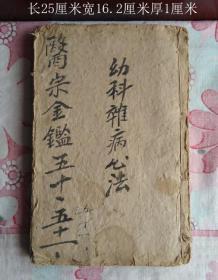 长25厘米宽16.2厘米厚1厘米
醫宗金鑑五十、五十一、
幼科雜病心法